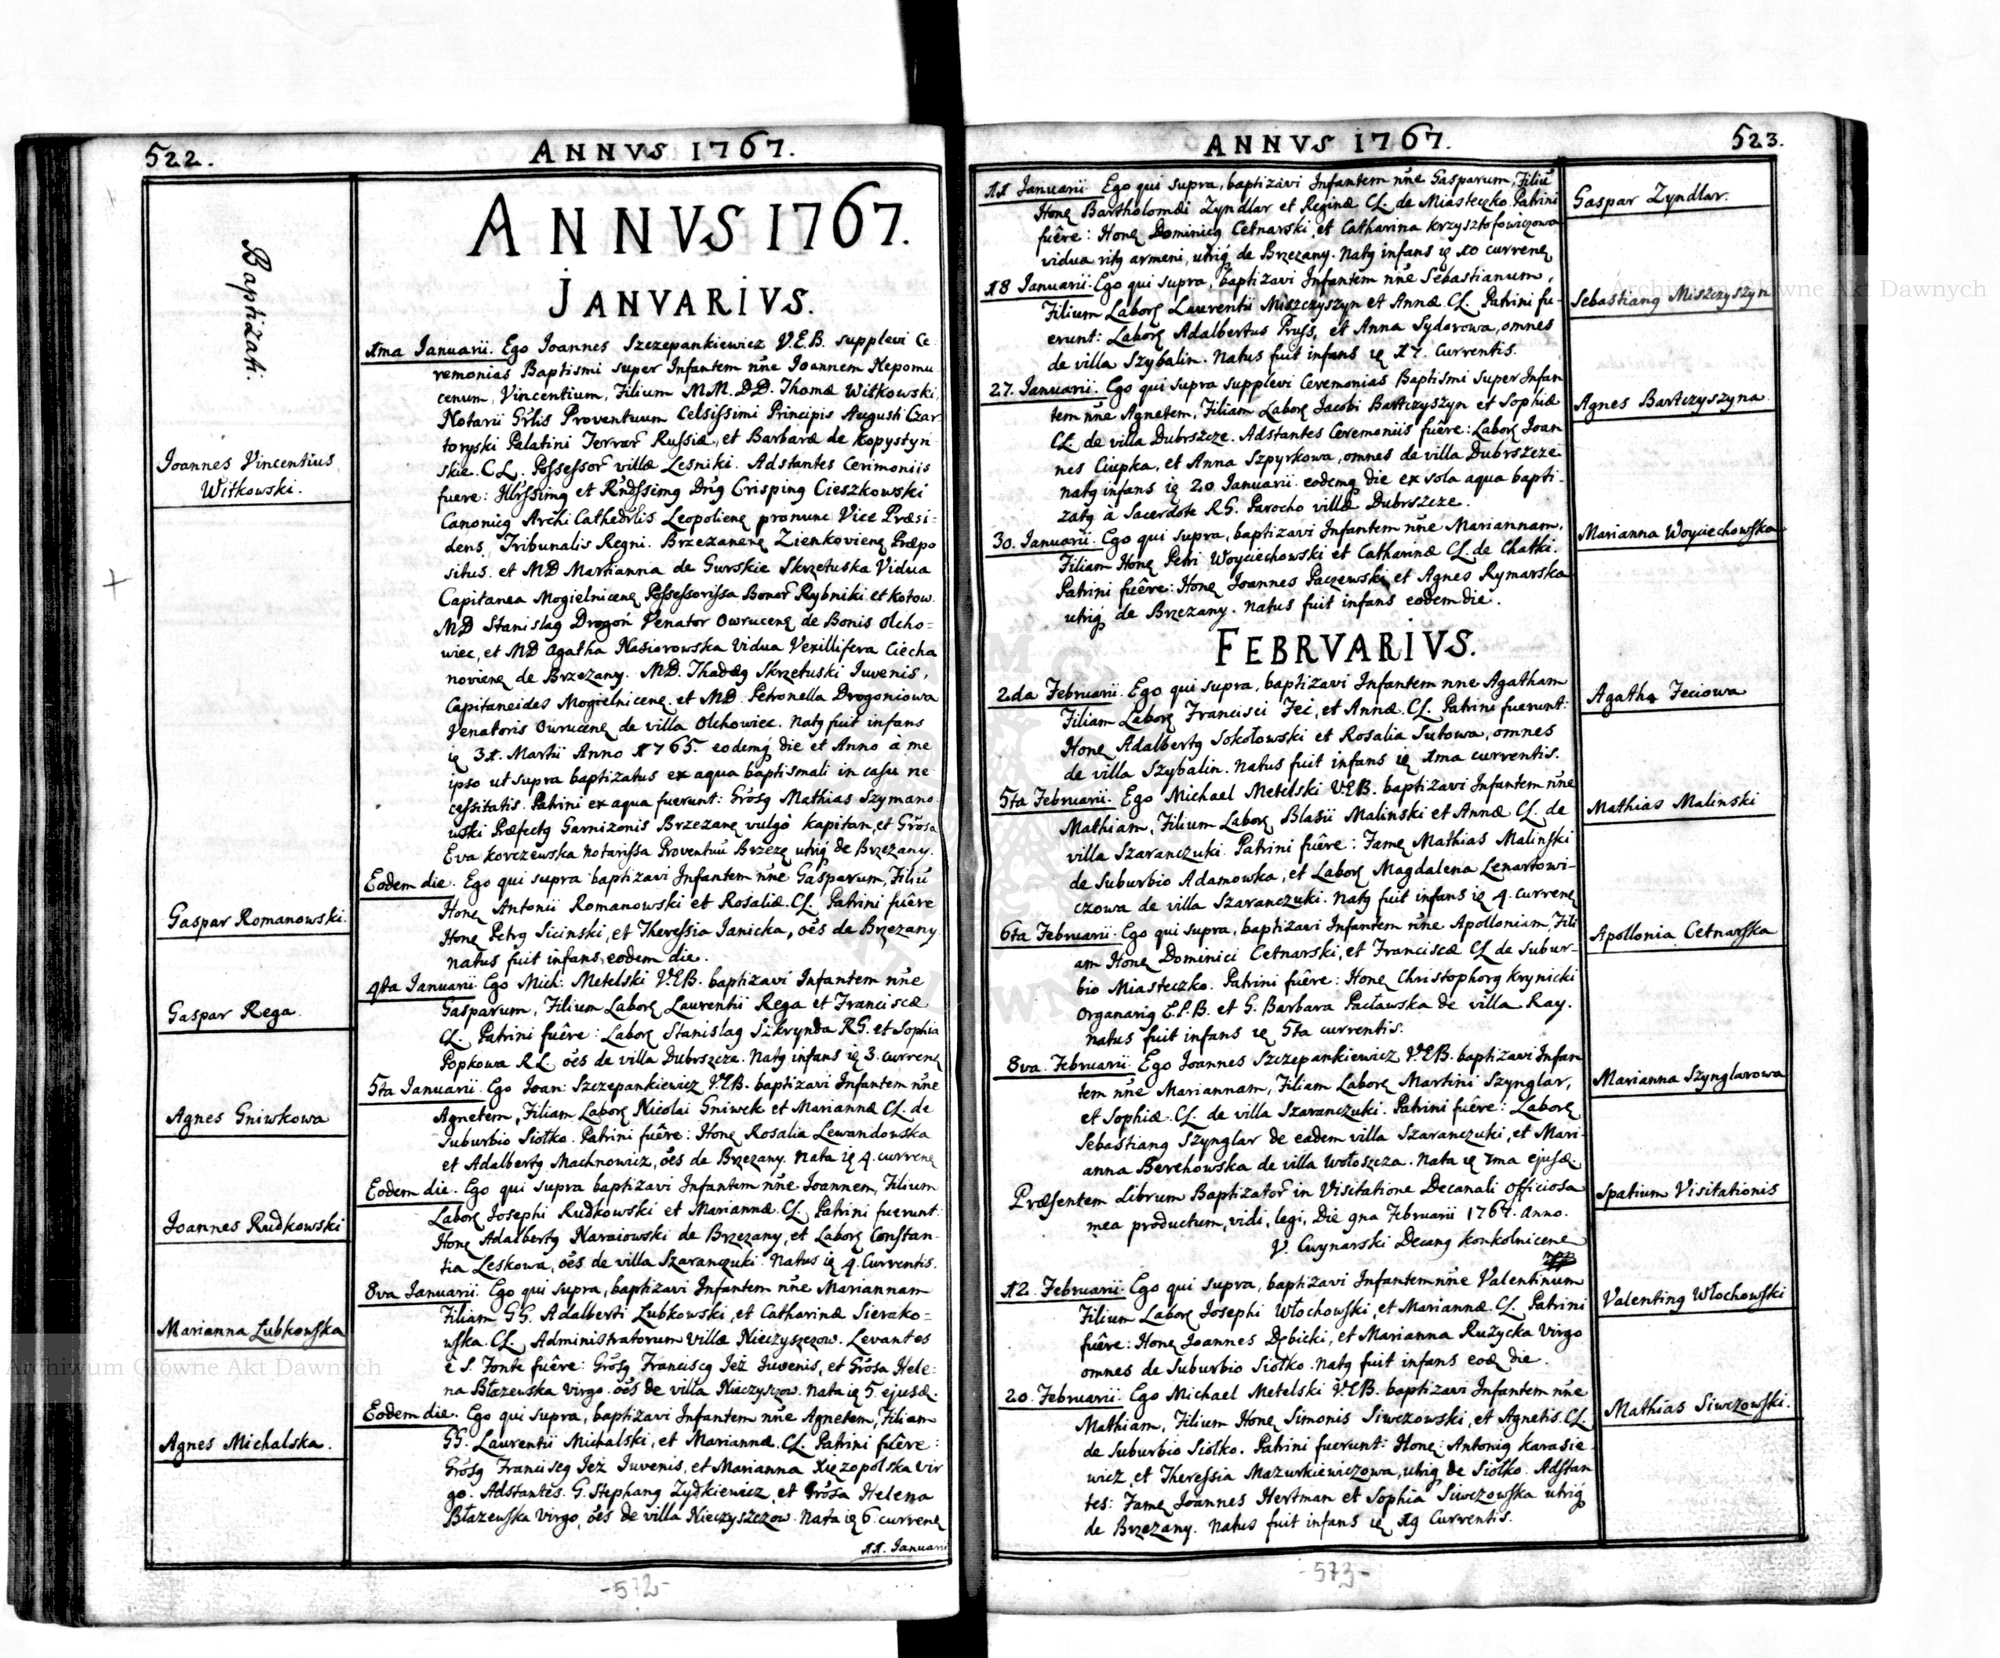 522.
ANNVS 1767.
Baptizati.
ANNVS 1767.
JANVARIVS.
1ma Januarii. Ego Joannes Szczepankiewicz V.E.B. supplevi Ce
remonias Baptismi super Infantem nñe Joannem Nepomu
cenum, Vincentium, Filium M.M.DD. Thomæ Witkowski,
Notarii Grlis Proventuum Celsissimi Principis Augusti Czar-
toryski Palatini Terrar Russiæ, et Barbaræ de Kopystyn
skie. C.L. Possessor villæ Lesniki. Adstantes Cerimoniis
Joannes Vincentius
Witkowski.
fuere: Illrssimq et Rndssimq Dnq Crispinq Cieszkowski
Canonicq Archi Cathedrlis Leopolienę pronunc Vice Præsi-
dens, Tribunalis Regni. Brzezanenę Zienkovienę Præpo
situs. et MD Marianna de Gurskie Skrzetuska Vidua
Capitanea Mogielnicenę Possessorissa Bonor Rybniki et Kotow.
MD Stanislaq Drogoń Venator Owrucenę de Bonis Olcho-
wiec, et MD Agatha Nasiorowska Vidua Vexillifera Ciecha
novienę de Brzezany. MD. Thadæq Skrzetuski Juvenis,
Capitaneides Mogielnicenę. et MD. Petronella Drogoniowa
Venatoris Owrucenę de villa Olchowiec. Natq fuit infans
ię 31. Martii Anno 1765. eodemq die et Anno à me
ipso ut supra baptizatus ex aqua baptismali in casu ne
cessitatis. Patrini ex aqua fuerunt: Grosq Mathias Szymano
wski Præfectq Garnizonis Brzezanę vulgò Kapitan, et Grosa
Eva Korczewska Notarissa Proventuũ Brzezę utriq de Brzezany.
Eodem die. Ego qui supra baptizavi Infantem nñe Gasparum, Filiũ
Gaspar Romanowski.
Honę Antonii Romanowski et Rosaliæ. CL. Patrini fuêre
Honę Petrq Sicinski, et Theressia Janicka, oẽs de Brzezany.
natus fuit infans eodem die.
4ta Januarii Ego Mich: Metelski V.E.B. baptizavi Infantem nñe
Gaspar Rega.
Gasparum, Filium Laborę Laurentii Rega et Franciscæ
CL. Patrini fuêre: Laborę Stanislaq Szkrynda RG. et Sophia
Popkowa R.L. oẽs de villa Dubrszcze. Natq infans ię 3. currenę
5ta Januarii. Ego Joan: Szczepankiewicz V.E.B. baptizavi Infantem nñe
Agnes Gniwkowa
Agnetem, Filiam Laborę Nicolai Gniwek et Mariannæ CL. de
Suburbio Siołko. Patrini fuêre: Honę Rosalia Lewandowska
et Adalbertq Machnowicz, oẽs de Brzezany. Nata ię 4. currenę
Eodem die. Ego qui supra baptizavi Infantem nñe Joannem, Filium
Joannes Rudkowski
Laborę Josephi Rudkowski et Mariannæ. CL. Patrini fuerunt:
Honę Adalbertq Naraiowski de Brzezany, et Laborę Constan-
tia Leskowa, oẽs de villa Szaranczuki. Natus ię 4. Currentis.
8va Januarii. Ego qui supra, baptizavi Infantem nñe Mariannam
Marianna Lubkowska
Filiam GG. Adalberti Lubkowski, et Catharinæ Sierako-
wska. CL. Administratorum villæ Nieczyszczow. Levantes
è S. Fonte fuêre: Grosq Franciscq Jeż Juvenis, et Grosa Hele-
na Błazewska Virgo. oẽs de villa Nieczyszczow. Nata ię 5. ejusdę.
Eodem die. Ego qui supra, baptizavi Infantem nñe Agnetem, Filiam
Agnes Michalska.
GG. Laurentii Michalski, et Mariannæ. CL. Patrini fuêre:
Grosq Franciscq Jeż Juvenis, et Marianna Xięzopolska Vir
go. Adstantes. G. Stephanq Zydkiewicz, et Grosa Helena
Błazewska Virgo, oẽs de villa Nieczyszczow. Nata ię 6. currenę
11. Januarii
-572-
ANNVS 1767.
523.
11 Januarii Ego qui supra, baptizavi Infantem nñe Gasparum, Filiũ
Gaspar Zyndlar.
Honę Bartholomæi Zyndlar et Reginæ CL. de Miasteczko. Patrini
fuêre: Honę Dominicq Cetnarski, et Catharina Krzysztofowiczowa
vidua ritq armeni, utriq de Brzezany. Natq infans ię 10 currenę
18 Januarii. Ego qui supra, baptizavi Infantem nñe Sebastianum,
Sebastianq Miszczyszyn
Filium Laborę Laurentii Miszczyszyn et Annæ CL. Patrini fu-
erunt: Laborę Adalbertus Pruss, et Anna Sydorowa, omnes
de villa Szybalin. Natus fuit infans ię 17. Currentis.
27. Januarii. Ego qui supra supplevi Ceremonias Baptismi super Infan
Agnes Bartczyszyna.
tem nñe Agnetem, Filiam Laborę Jacobi Bartczyszyn et Sophiæ
CL. de villa Dubrszcze. Adstantes Ceremoniis fuêre: Laborę Joan
nes Ciupka, et Anna Szpyrkowa, omnes de villa Dubrszcze
natq infans ię 20 Januarii. eodemq die ex sola aqua bapti-
zatq à Sacerdote R.G. Parocho villæ Dubrszcze.
30. Januarii. Ego qui supra, baptizavi Infantem nñe Mariannam,
Marianna Woyciechowska
Filiam Honę Petri Woyciechowski et Catharinæ CL. de Chatki.
Patrini fuêre: Honę Joannes Paczewski, et Agnes Rymarska
utriq de Brzezany. Natus fuit infans eodem die.
FEBRVARIVS.
2da Februarii. Ego qui supra, baptizavi Infantem nñe Agatham
Agatha Feciowa
Filiam Laborę Francisci Feć, et Annæ. CL. Patrini fuerunt:
Honę Adalbertq Sokołowski et Rosalia Sutowa, omnes
de villa Szybalin. Natus fuit infans ię 1ma currentis.
5ta Februarii. Ego Michael Metelski V.E.B. baptizavi Infantem nñe
Mathias Malinski
Mathiam, Filium Laborę Blasii Malinski et Annæ CL. de
villa Szaranczuki. Patrini fuêre: Famę Mathias Malinski
de Suburbio Adamowka, et Laborę Magdalena Lenartowi-
czowa de villa Szaranczuki. Natq fuit infans ię 4. currenę
6ta Februarii. Ego qui supra, baptizavi Infantem nñe Apolloniam, Fili
Apollonia Cetnarska
am Honę Dominici Cetnarski, et Franciscæ CL de Subur-
bio Miasteczko. Patrini fuêre: Honę Christophorq Krynicki
Organariq E.P.B. et G. Barbara Pacławska de villa Ray.
natus fuit infans ię 5ta currentis.
8va. Februarii. Ego Joannes Szczepankiewicz V.E.B. baptizavi Infan
Marianna Szynglarowa
tem nñe Mariannam, Filiam Laborę Martini Szynglar,
et Sophiæ. CL. de villa Szaranczuki. Patrini fuêre: Laborę
Sebastianq Szynglar de eadem villa Szaranczuki, et Mari-
anna Berehowska de villa Wołoszcza. Nata ię 7ma ejusdę.
Præsentem Librum Baptizator in Visitatione Decanali Officiosa
Spatium Visitationis
mea productum, vidi, legi, Die 9na Februarii 1767. Anno.
V. Cwynarski Decanq Konkolnicenę
12. Februarii. Ego qui supra, baptizavi Infantem nñe Valentinum
Valentinq Włochowski
Filium Laborę Josephi Włochowski, et Mariannæ. CL. Patrini
fuêre: Honę Joannes Dębicki, et Marianna Ruzycka Virgo
omnes de Suburbio Siołko. Natq fuit infans eodę die.
20. Februarii. Ego Michael Metelski V.E.B. baptizavi Infantem nñe
Mathias Siwczowski.
Mathiam, Filium Honę Simonis Siwczowski, et Agnetis. CL.
de Suburbio Siołko. Patrini fuerunt: Honę: Antoniq Karasie
wicz, et Theressia Mazurkiewiczowa, utriq de Siołko. Adstan
tes: Famę Joannes Hertman et Sophia Siwczowska utriq
de Brzezany. Natus fuit infans ię 19 Currentis.
-573-
Archiwum Główne Akt Dawnych
Archiwum Główne Akt Dawnych